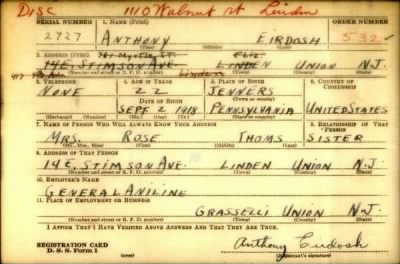 DISC 1110 Walnut St Linden
SERIAL NUMBER 1. NAME (Print) ORDER NUMBER
2727 ANTHONY EIRDOSH 532
(First) (Middle) (Last)
2. ADDRESS (Print)
741 MYRTLE ST. ELIZ.
14 E. STIMSON AVE. LINDEN UNION N.J.
417 Linden
(Number and street or R. F. D. number) (Town) (County) (State)
3. TELEPHONE 4. AGE IN YEARS 5. PLACE OF BIRTH 6. COUNTRY OF CITIZENSHIP
NONE 22 JENNERS
DATE OF BIRTH (Town or county)
SEPT. 2 1918 PENNSYLVANIA UNITED STATES
(Exchange) (Number) (Mo.) (Day) (Yr.) (State or country)
7. NAME OF PERSON WHO WILL ALWAYS KNOW YOUR ADDRESS 8. RELATIONSHIP OF THAT PERSON
MRS. ROSE THOMS SISTER
(Mr., Mrs., Miss) (First) (Middle) (Last)
9. ADDRESS OF THAT PERSON
14 E. STIMSON AVE. LINDEN UNION N.J.
(Number and street or R. F. D. number) (Town) (County) (State)
10. EMPLOYER'S NAME
GENERAL ANILINE
11. PLACE OF EMPLOYMENT OR BUSINESS
GRASSELLI UNION N.J.
(Number and street or R. F. D. number) (Town) (County) (State)
I AFFIRM THAT I HAVE VERIFIED ABOVE ANSWERS AND THAT THEY ARE TRUE.
REGISTRATION CARD
D. S. S. Form 1 Anthony Eirdosh
(over) (Registrant's signature)